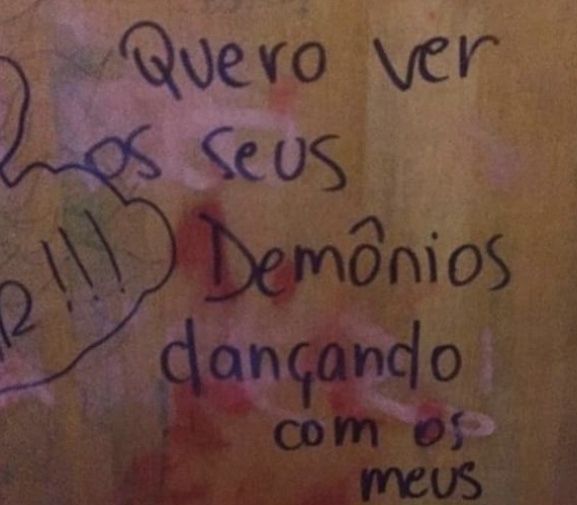 Quero ver
os seus
Demônios
dançando
com os
meus
R!!!